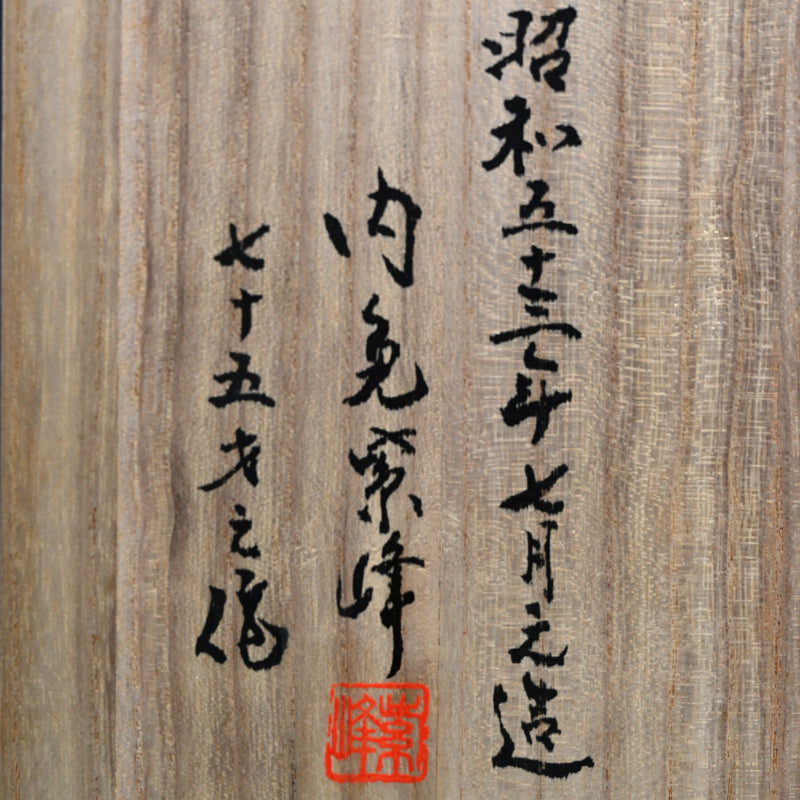 昭和五十三年七月之造
内免紫峰
七十五才之
紫峰